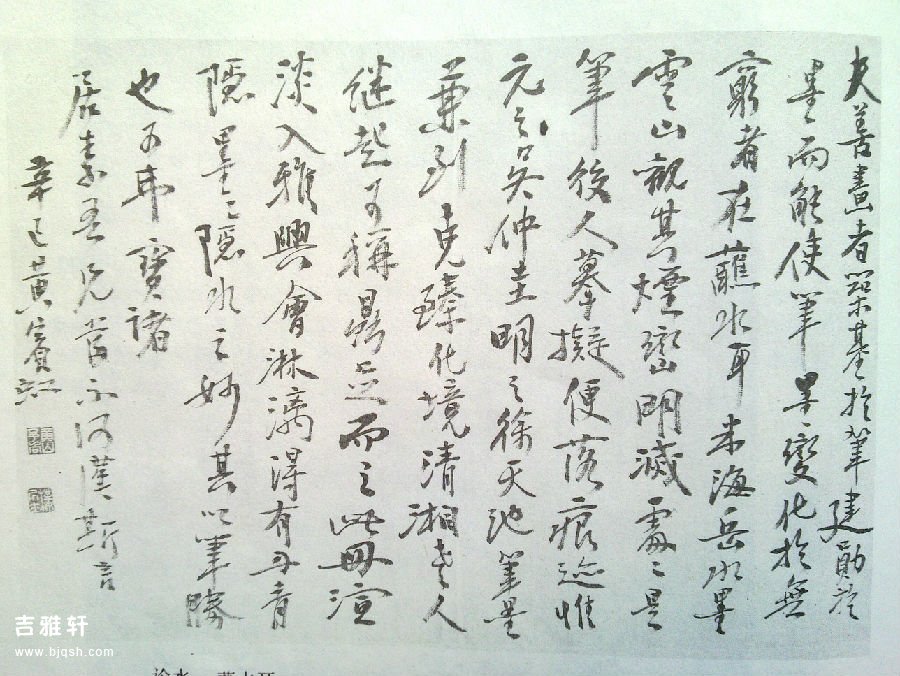 夫善畫者築基於筆建勛於
墨而能使筆墨變化於無
窮者在蘸水耳米海岳水墨
雲山觀其煙巒明滅處〻是
筆後人摹擬便落痕迹惟
元之吳仲圭明之徐天池筆墨
兼到克臻化境清湘老人
継起可稱鼎足而之此冊渲
淡入雅興會淋漓得有丹青
隱墨〻隱水之妙其以筆勝
也可弗寶諸
居素吾兄當不河漢斯言
辛巳黃賓虹
吉雅轩
www.bjqsh.com